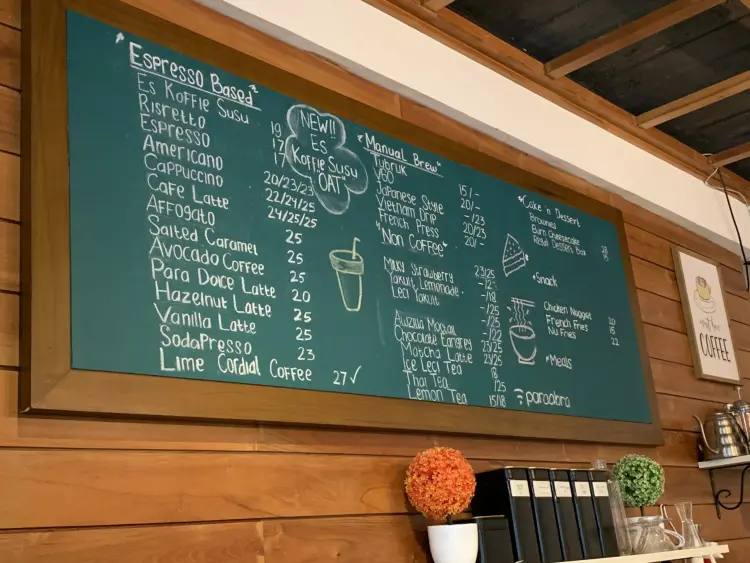 Espresso Based
Es Koffie Susu 19
Risretto 17
Espresso 17
Americano 20/23/23
Cappucino 22/24/25
Cafe Latte 24/25/25
Affogato 25
Salted Caramel 25
Avocado Coffee 25
Para Dolce Latte 20
Hazelnut Latte 25
Vanilla Latte 25
SodaPresso 23
Lime Cordial Coffee 27✓
NEW!!
ES
Koffie Susu
OAT
"Manual Brew"
Tubruk 15/-
V60 20/-
Japanese Style -/23
Vietnam Drip 20/23
French Press 20/-
"Non Coffee"
Milky Strawberry 23/25
Yakult Lemonade
Leci Yakult -/18
Chocolate
Matcha Latte
Ice Leci Tea 18
Thai Tea
Lemon Tea 15/18
*Cake 'n Dessert
Brownies
Burn Cheesecake
Dessert Box
*Snack
Chicken Nugget 20
French Fries 15
Nu Fries 22
*Meals
COFFEE